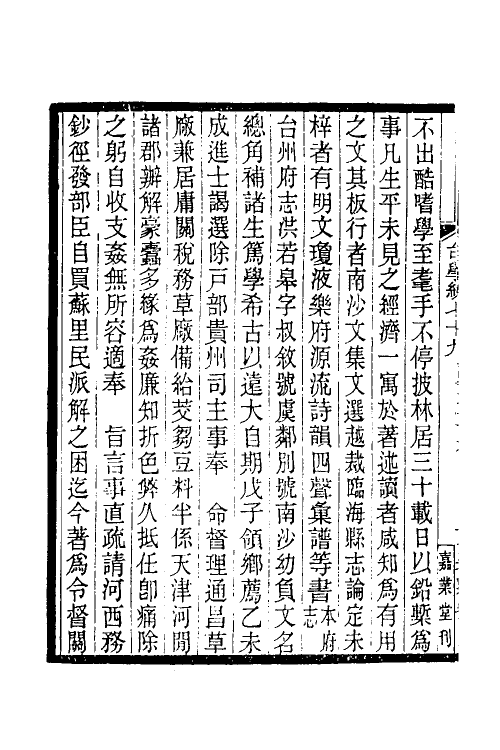 不出酷嗜學至耄手不停披林居三十載日以鉛槧爲
事凡生平未見之經濟一寓於著述讀者咸知爲有用
之文其板行者南沙文集文選越裁臨海縣志論定未
梓者有明文瓊液樂府源流詩韻四聲彙譜等書本府志
台州府志洪若皋字叔敘號虞鄰別號南沙幼負文名
總角補諸生篤學希古以遠大自期戊子領鄉薦乙未
成進士謁選除戸部貴州司主事奉 命督理通昌草
廠兼居庸關稅務草廠備給芻豆料半係天津河閒
諸郡辦解豪蠹多緣爲姦廉知折色弊久抵任卽痛除
之躬自收支姦無所容適奉 旨言事直疏請河西務
鈔徑發部臣自買蘇里民派解之困迄今著爲令督關
台學統七十九
嘉業堂刊